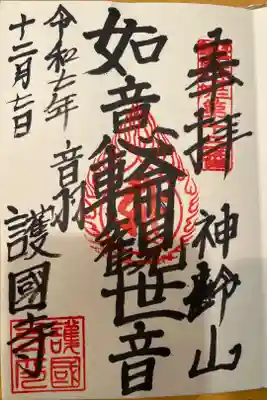 奉拝
神齢山
如意輪観世音
音羽
護國寺
令和七年
十二月七日
護國寺印